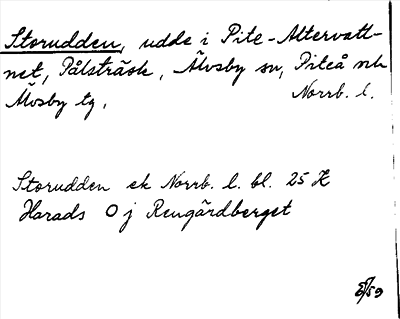 Storudden, udde i Pite-Altervatt-
net, Pålsträsk, Älvsby sn, Piteå
Älvsby tg, Norrb. l.
Storudden ek Norrb. l. bl. 25 H
Harads O j Rengårdberget
/59